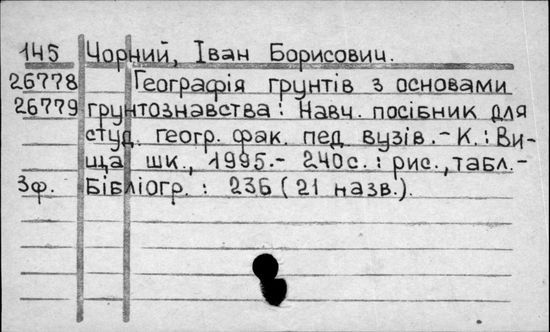 145 Чорний, Іван Борисович.
26778 Географія грунтів з основами
26779 грунтознавства: Навч. посібник для
студ. геогр. фак. пед. вузів. - К.: Ви-
ща шк., 1995. - 240с.: рис., табл. -
3ф. Бібліогр.: 236 (21 назв.).